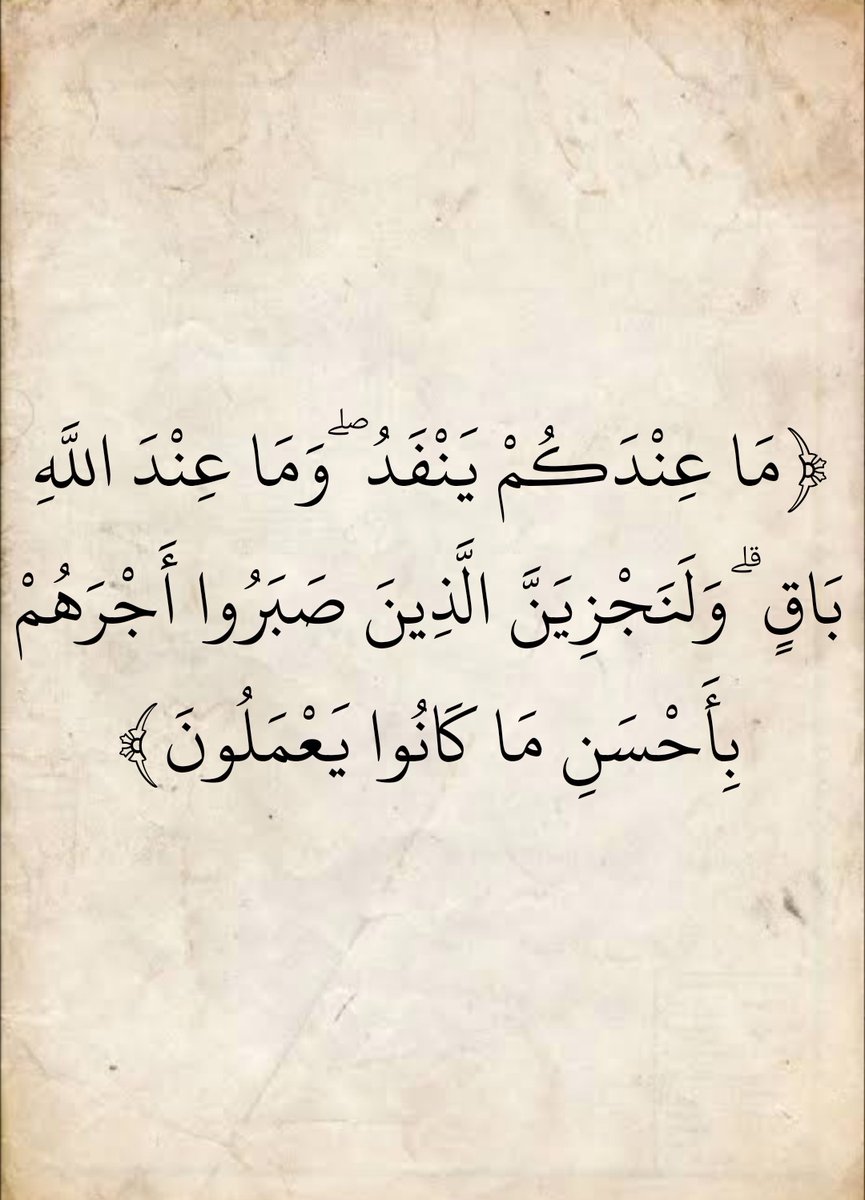 ﴿مَا عِنْدَكُمْ يَنْفَدُ ۖ وَمَا عِنْدَ اللَّهِ
بَاقٍ ۗ وَلَنَجْزِيَنَّ الَّذِينَ صَبَرُوا أَجْرَهُمْ
بِأَحْسَنِ مَا كَانُوا يَعْمَلُونَ﴾